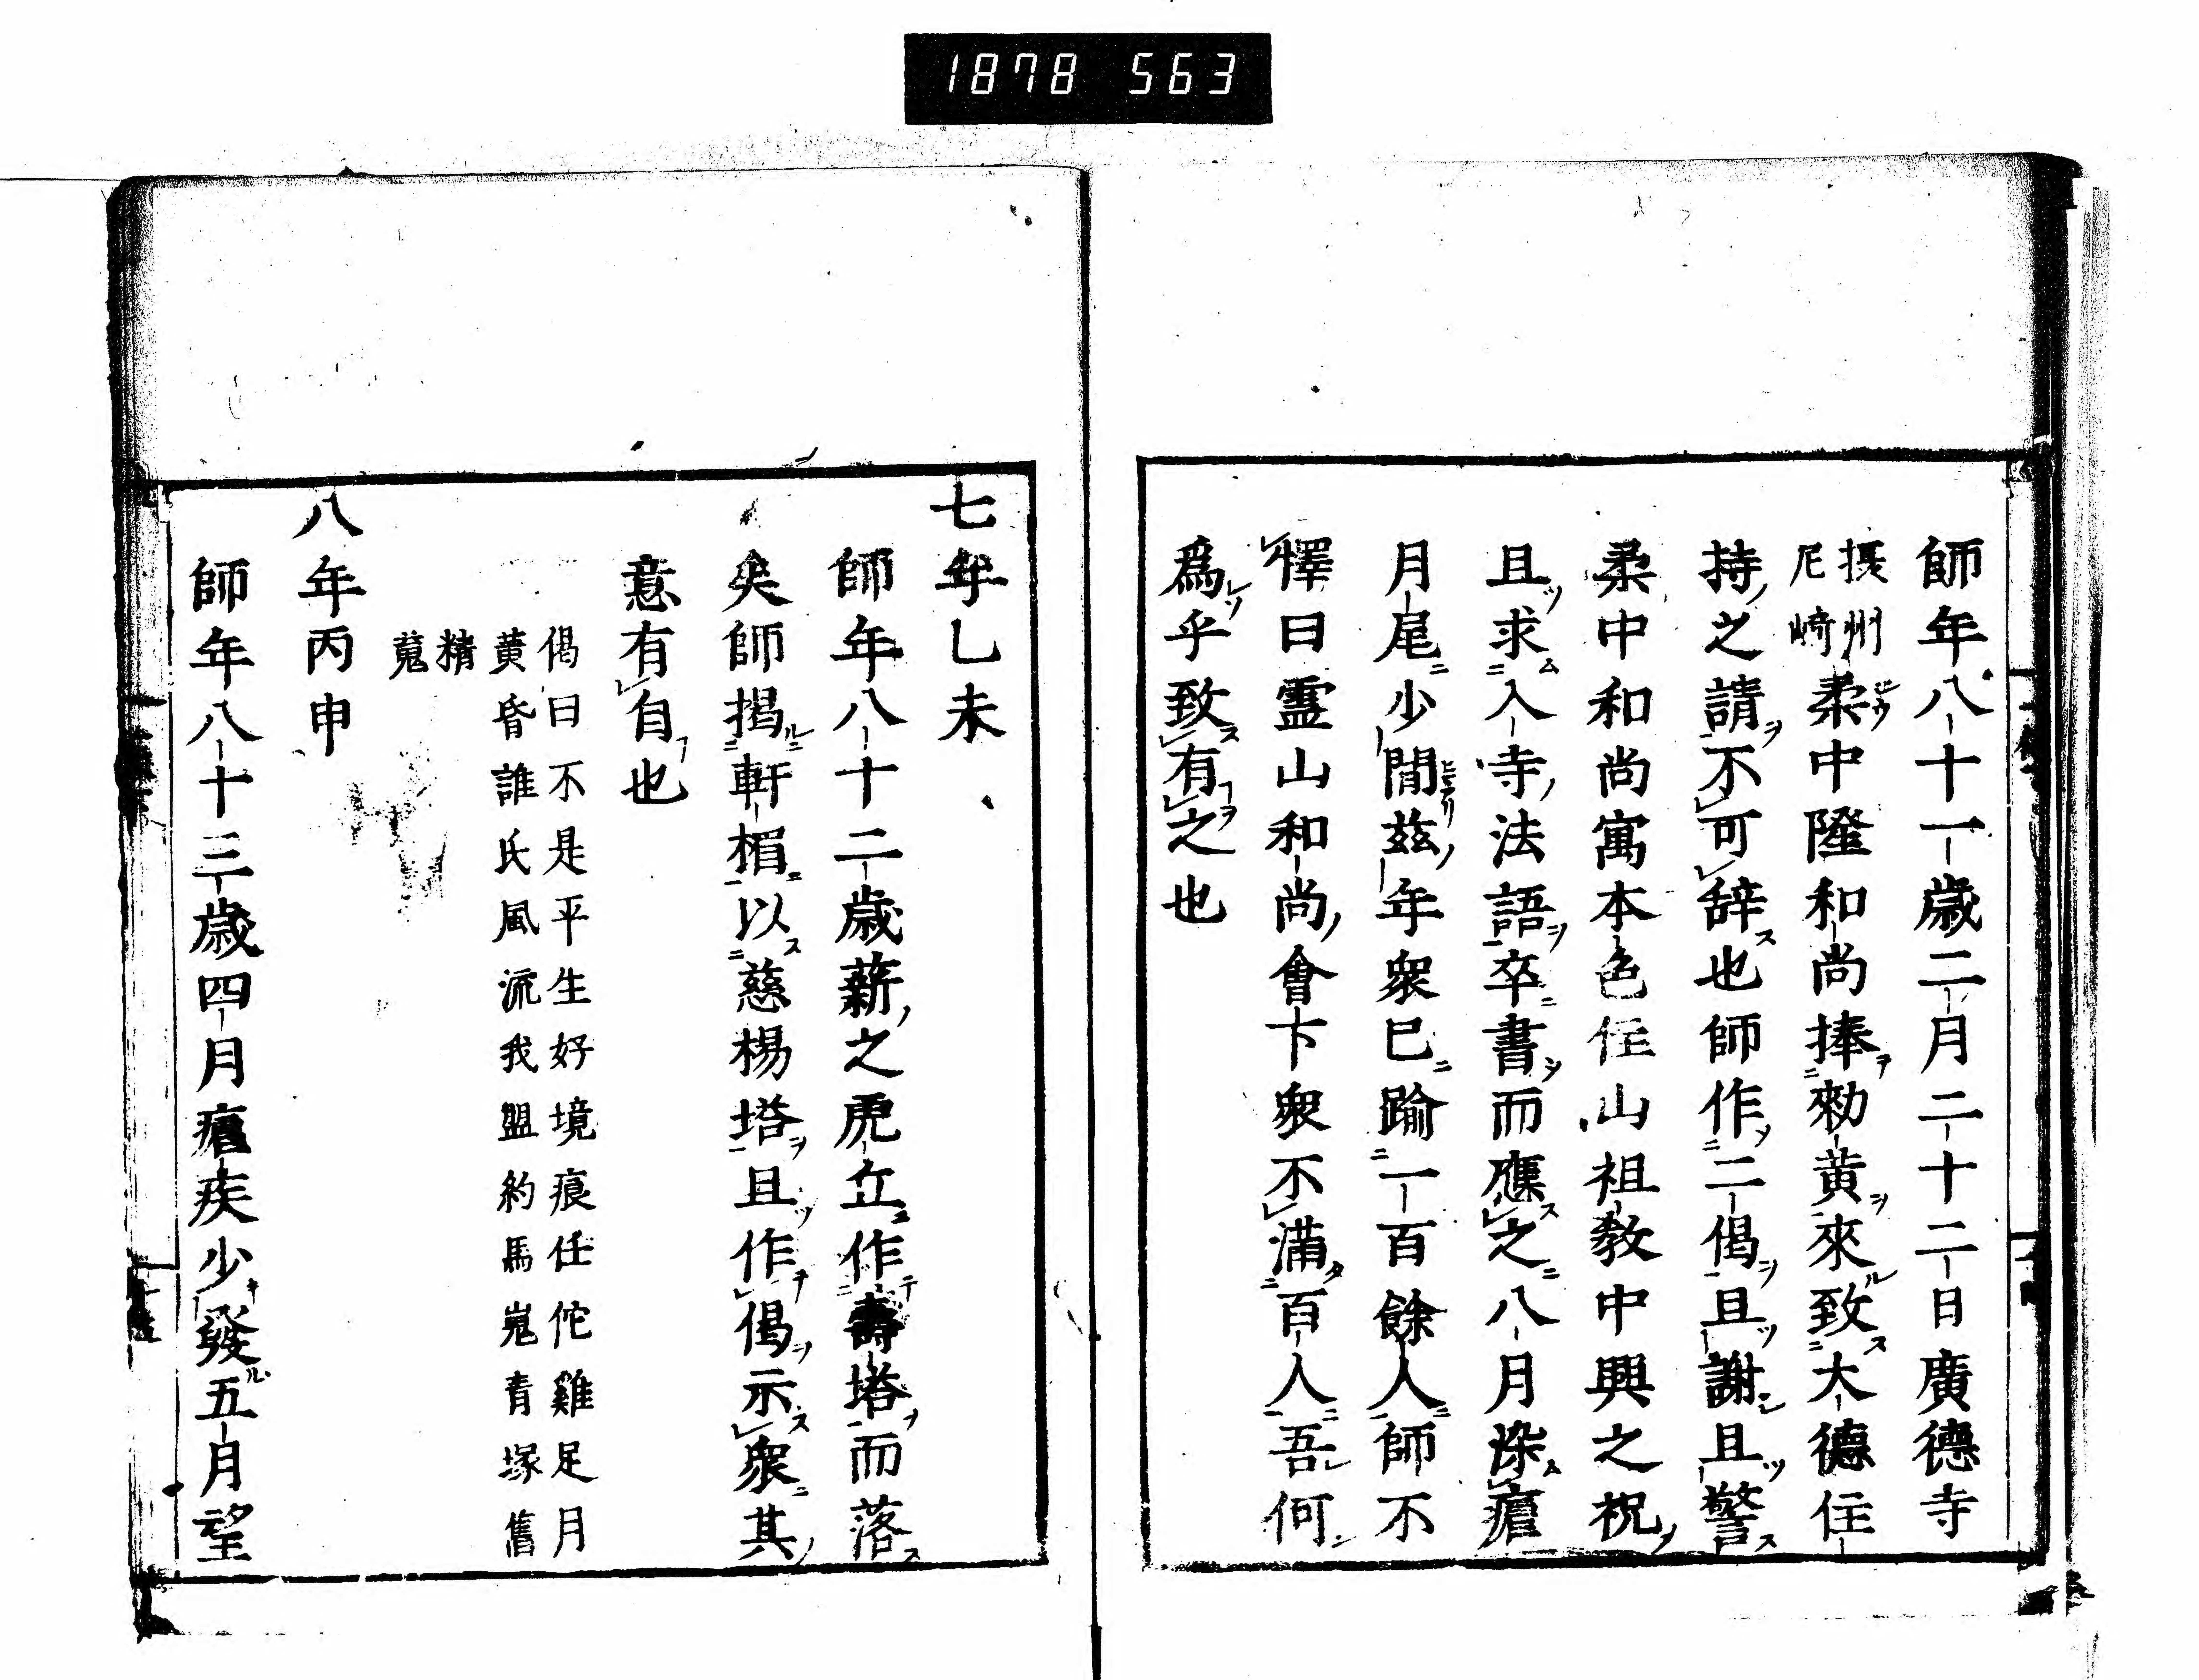 1878 563
師年八十一歳二月二十二日廣德寺
摂州
尼﨑
柔中隆和尚捧勑黄來致大德住
持之請不可辞也師作二偈且謝且警
柔中和尚寓本色住山祖教中興之祝
且求入寺法語卒書而應之八月染瘧
月尾少閒茲年衆已踰一百餘人師不
懌曰霊山和尚會下衆不滿百人吾何
爲乎致有之也
七年乙未
師年八十二歳薪之虎丘作壽塔而落
矣師揭軒楣以慈楊塔且作偈示衆其
意有自也
偈曰不是平生好境痕任佗雞足月
黄昏誰氏風流我盟約馬嵬青塚舊
精
䰟
八年丙申
師年八十三歳四月瘧疾少發五月望